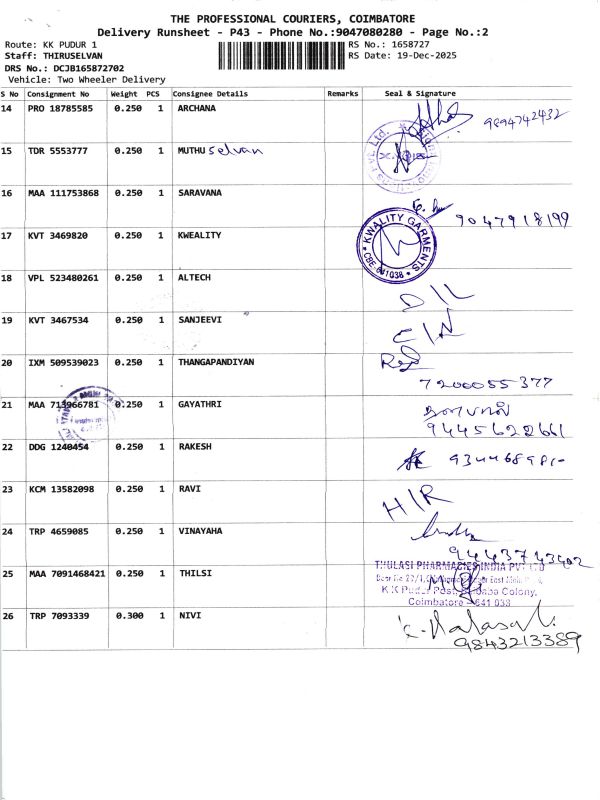 THE PROFESSIONAL COURIERS, COIMBATORE
Delivery Runsheet - P43 - Phone No.:9047080280 - Page No.:2
Route: KK PUDUR 1 RS No.: 1658727
Staff: THIRUSELVAN RS Date: 19-Dec-2025
DRS No.: DCJB165872702
Vehicle: Two Wheeler Delivery
S No Consignment No Weight PCS Consignee Details Remarks Seal & Signature
14 PRO 18785585 0.250 1 ARCHANA 9894742432
15 TDR 5553777 0.250 1 MUTHU selvan
16 MAA 111753868 0.250 1 SARAVANA 9047918199
17 KVT 3469820 0.250 1 KWEALITY KWALITY GARMENTS CBE-641038
18 VPL 523480261 0.250 1 ALTECH D/L
19 KVT 3467534 0.250 1 SANJEEVI C/N
20 IXM 509539023 0.250 1 THANGAPANDIYAN 7200055377
21 MAA 713966781 0.250 1 GAYATHRI 9445622661
22 DDG 1240454 0.250 1 RAKESH
23 KCM 13582098 0.250 1 RAVI H/R
24 TRP 4659085 0.250 1 VINAYAHA 9443743402
25 MAA 7091468421 0.250 1 THILSI THULASI PHARMACIES INDIA PVT LTD
K K Pudur Post, Colony,
Coimbatore - 641 038
26 TRP 7093339 0.300 1 NIVI 9843213389